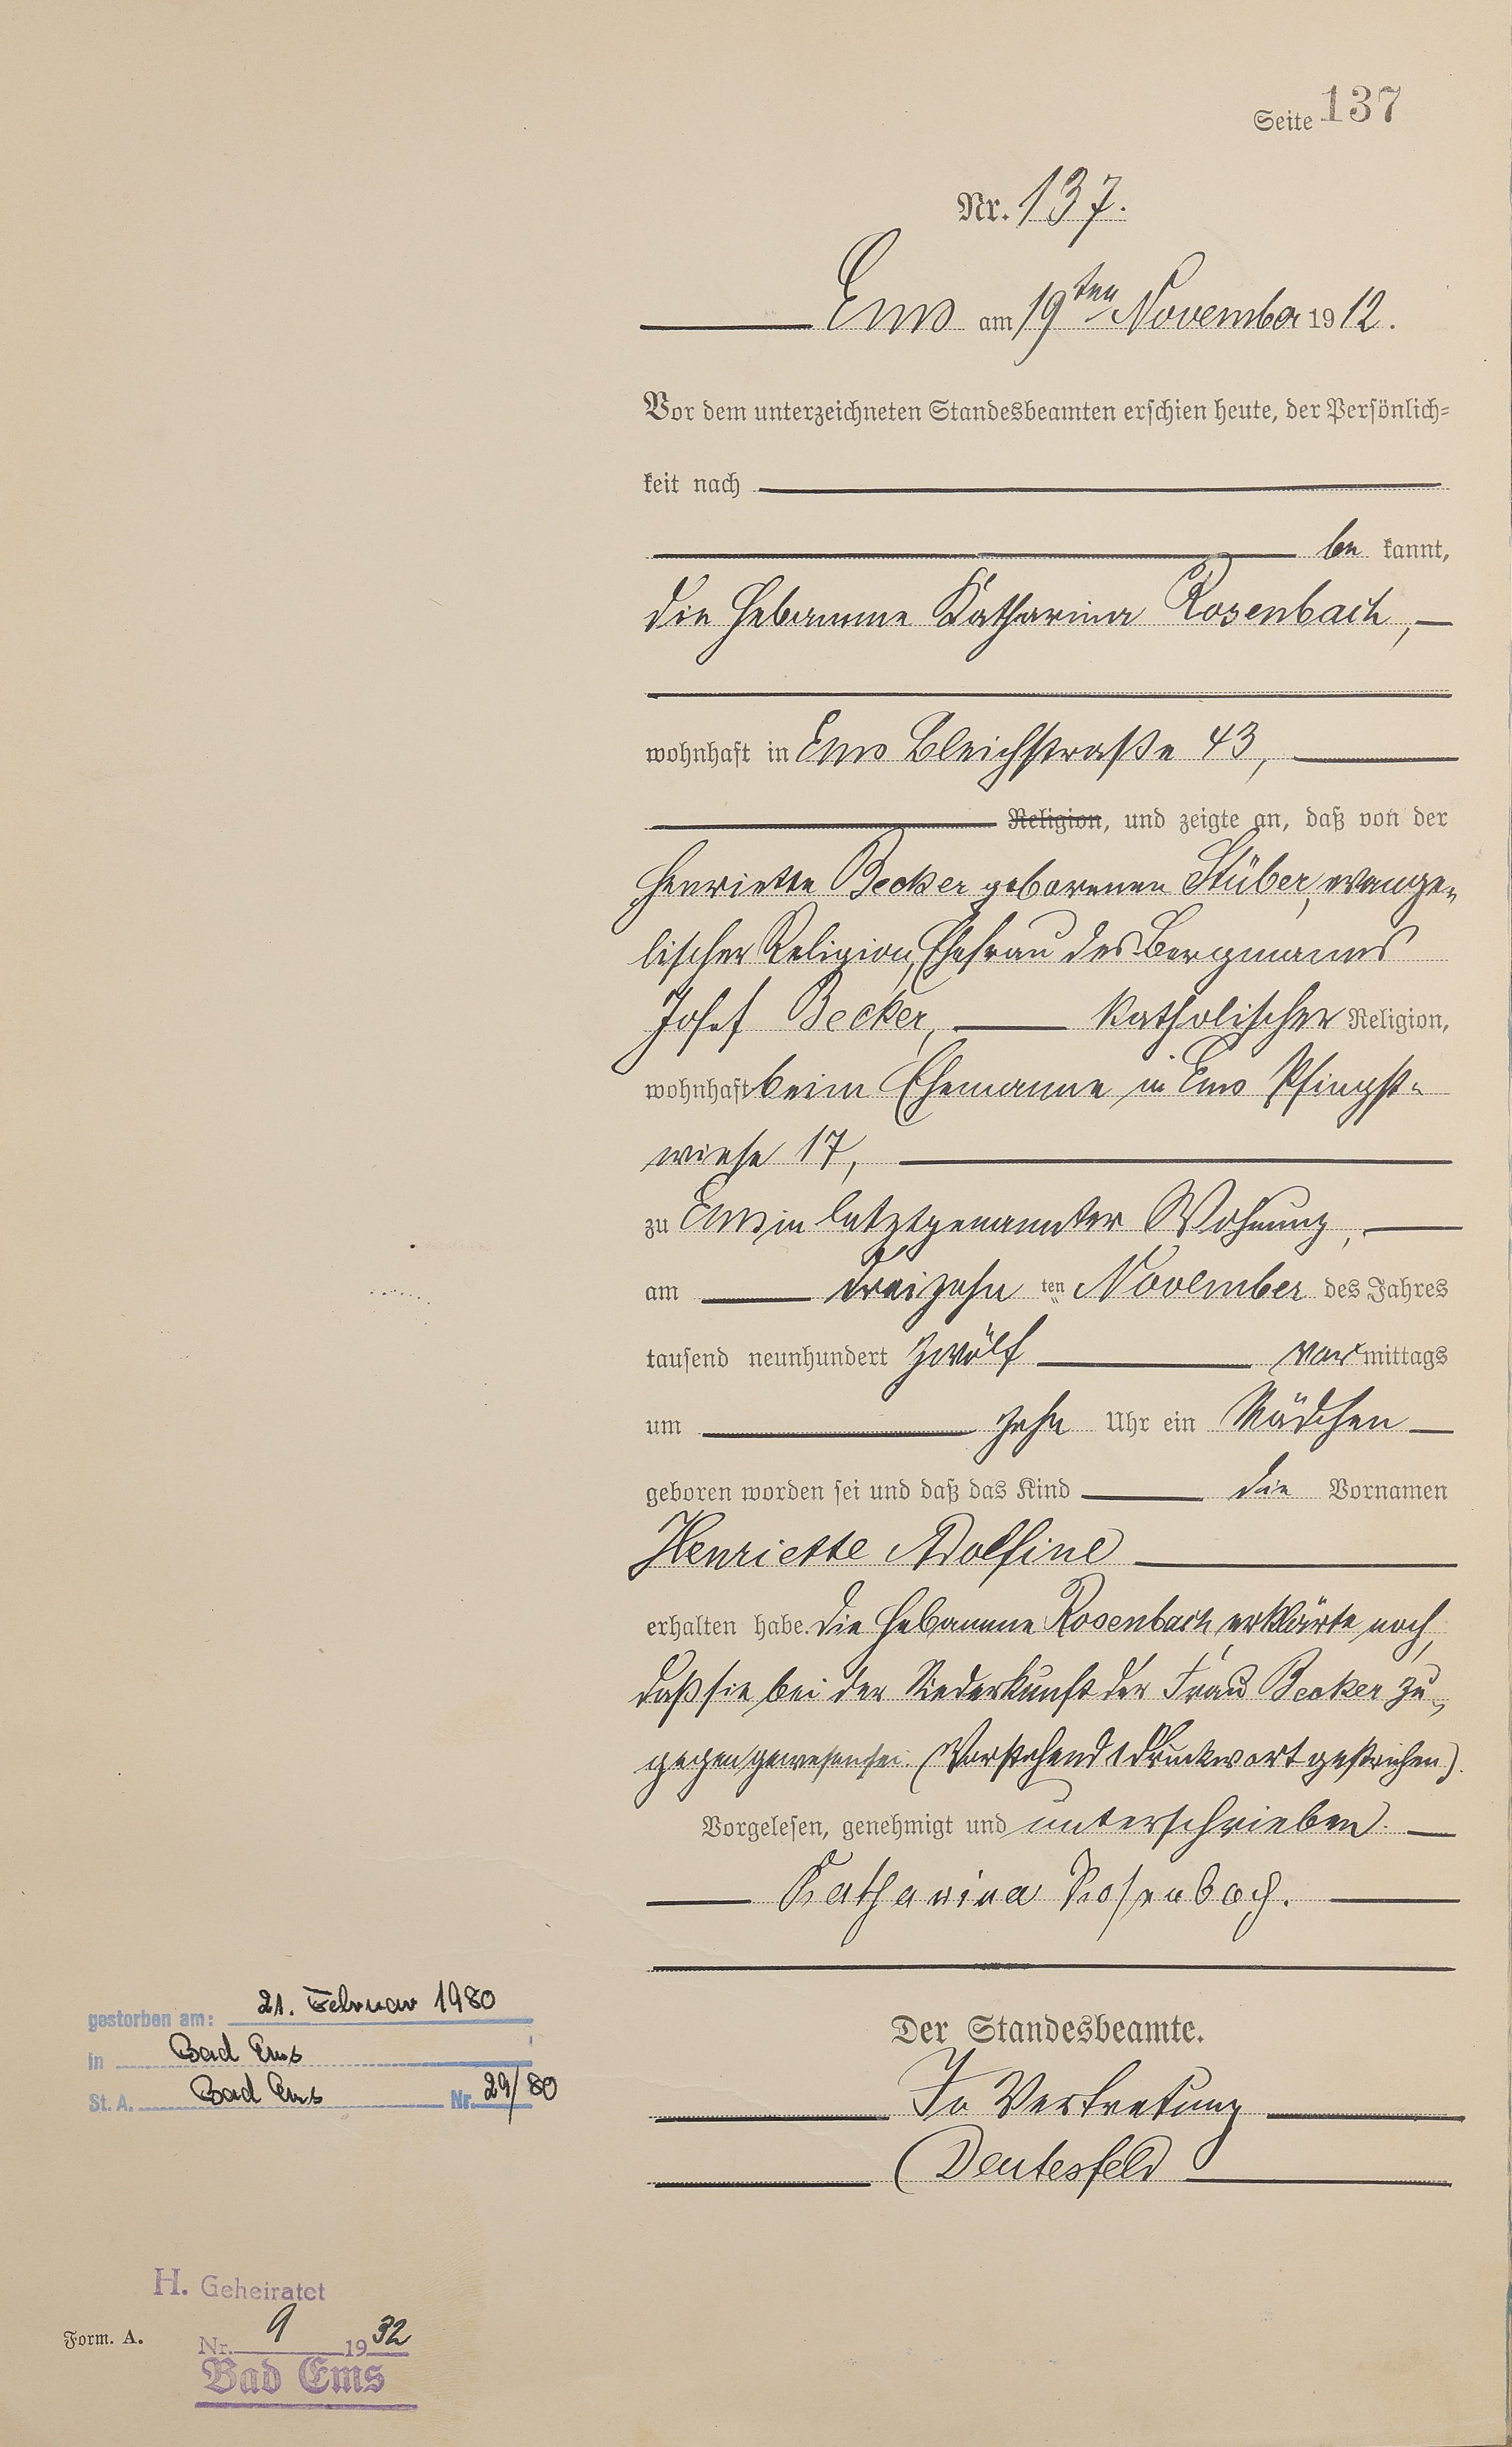 Seite 137
Nr. 137.
Ems am 19ten November 1912.
Vor dem unterzeichneten Standesbeamten erschien heute, der Persönlich-
keit nach
be kannt,
die Hebamme Katharina Rosenbach,
wohnhaft in Ems Bleichstraße 43,
Religion, und zeigte an, daß von der
Henriette Becker geborenen Stüber, evange-
lischer Religion, Ehefrau des Bergmanns
Josef Becker, katholischer Religion,
wohnhaft beim Ehemanne in Ems Pfingst-
wiese 17,
zu Ems in letztgenannter Wohnung,
am dreizehn ten November des Jahres
tausend neunhundert zwölf vormittags
um zehn Uhr ein Mädchen
geboren worden sei und daß das Kind die Vornamen
Henriette Adolfine
erhalten habe. Die Hebamme Rosenbach erklärte noch,
daß sie bei der Niederkunft der Frau Becker zu-
gegen gewesen sei. (Vorstehend 1 Druckwort gestrichen).
Vorgelesen, genehmigt und unterschrieben.
Katharina Rosenbach.
Der Standesbeamte.
In Vertretung
Deutesfeld
gestorben am: 21. Februar 1980
in Bad Ems
St. A. Bad Ems Nr. 29/80
H. Geheiratet
Form. A.
Nr. 9 1932
Bad Ems